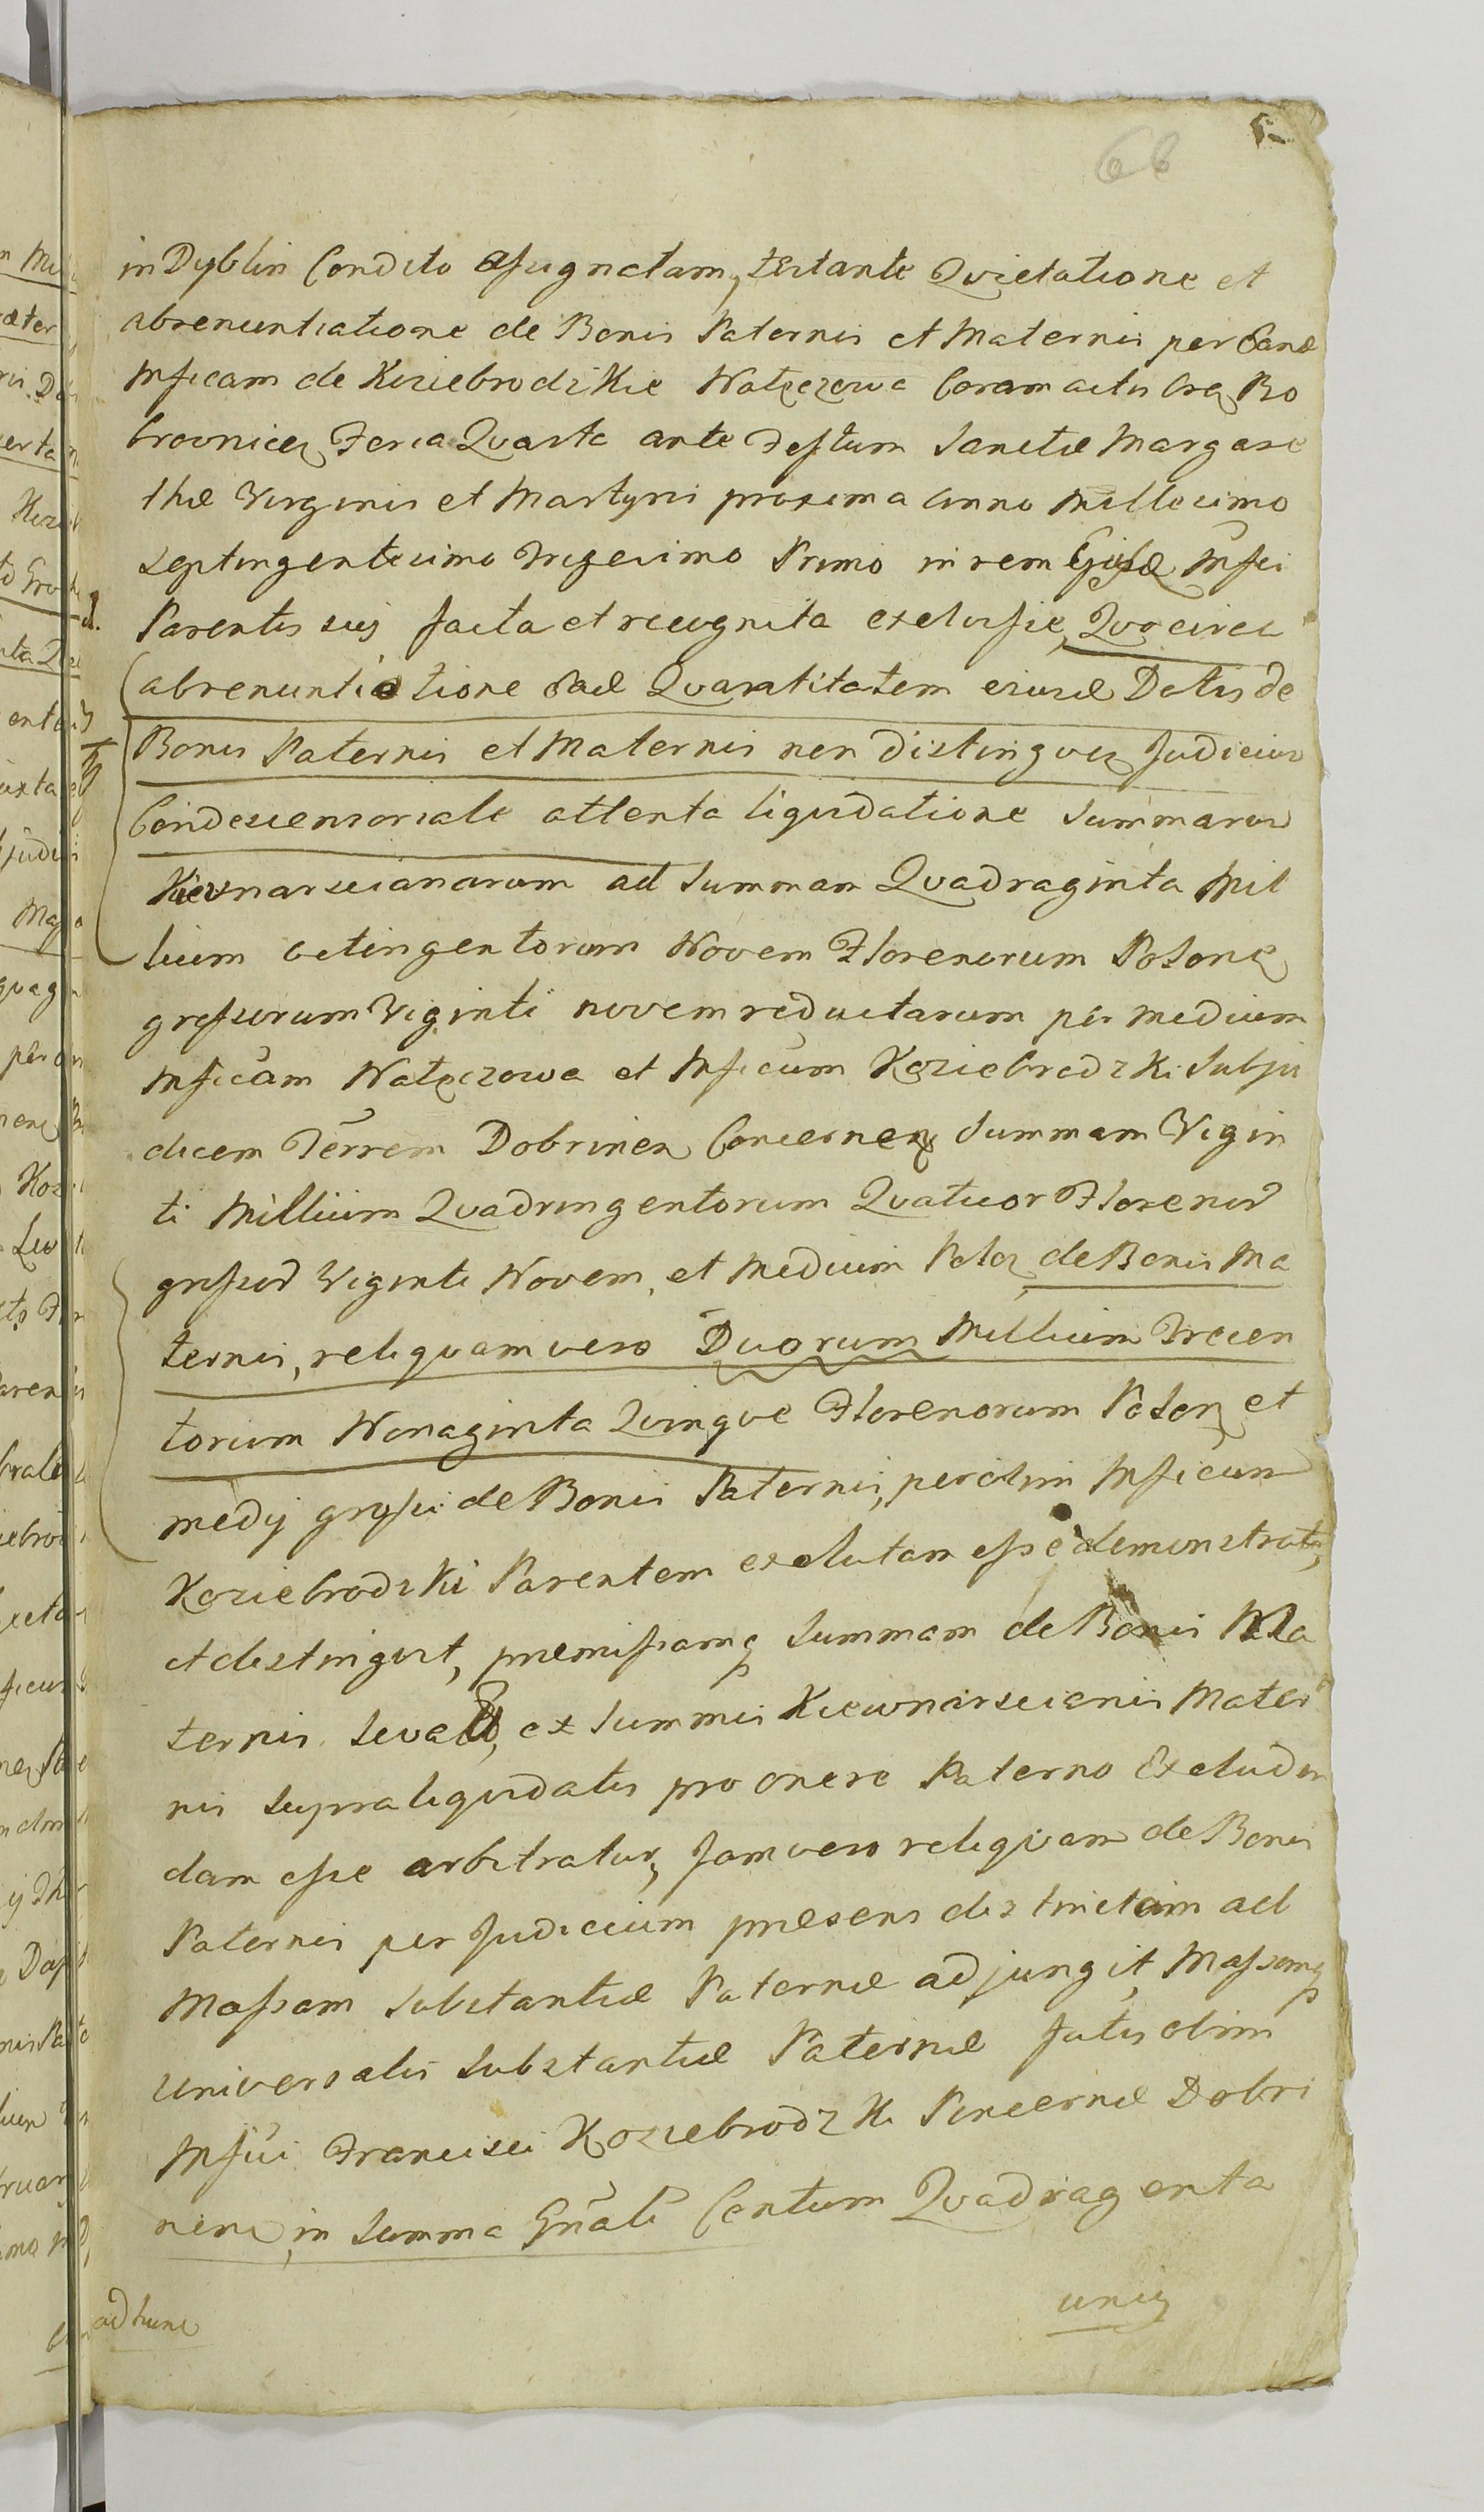 66
in Dyblin Condito assignatam, testante Quietatione et
abrenuntiatione de Bonis Paternis et Maternis per eand
Mficam de Koziebrodzkie Nałęczowa Coram actis Cra Bo
brovnicen Feria Quarta ante Festum Sanctæ Margare
thæ Virginis et Martyris proxima Anno Millesimo
Septingentesimo Trigesimo Primo in rem Ejusd Mfici
Parentis sui facta et recognita exolvisse, Quo circa
abrenuntiatione Quantitatem ejusd Dotis de
Bonis Paternis et Maternis non distinguen Judicium
Condescensoriale attenta liquidatione Summarum
Kiewnarscianarum ad Summam Quadraginta Mil
lium octingentorum Novem Florenorum Polona
grossorum Viginti novem reductarum per medium
Mficam Nałęczowa et Mficum Koziebrodzki Subju
dicem Terrem Dobrinen Concernen Summam Vigin
ti Millium Quadringentorum Quatuor Florenor
grossor Viginti Novem, et medium Polon de Bonis Ma
ternis, reliquam vero Duorum Millium Trecen
torum Nonaginta Quinque Florenorum Polon et
medij grossi de Bonis Paternis, per olim Mficum
Koziebrodzki Parentem exolutam esse demonstrata
et distinguit, præmissamq Summam de Bonis Ma
ternis ex Summis Kiewnarscianis Mater
nis supra liquidatis pro onere Paterno Excluden
dam esse arbitratur, Jam vero reliquam de Bonis
Paternis per Judicium præsens distinctam ad
Massam Substantiæ Paternæ adjungit, Massamq
universalis Substantiæ Paternæ fatis olim
Mfici Francisci Koziebrodzki Pincernæ Dobri
nens, in Summa Gnali Centum Quadraginta
unius
ad hunc